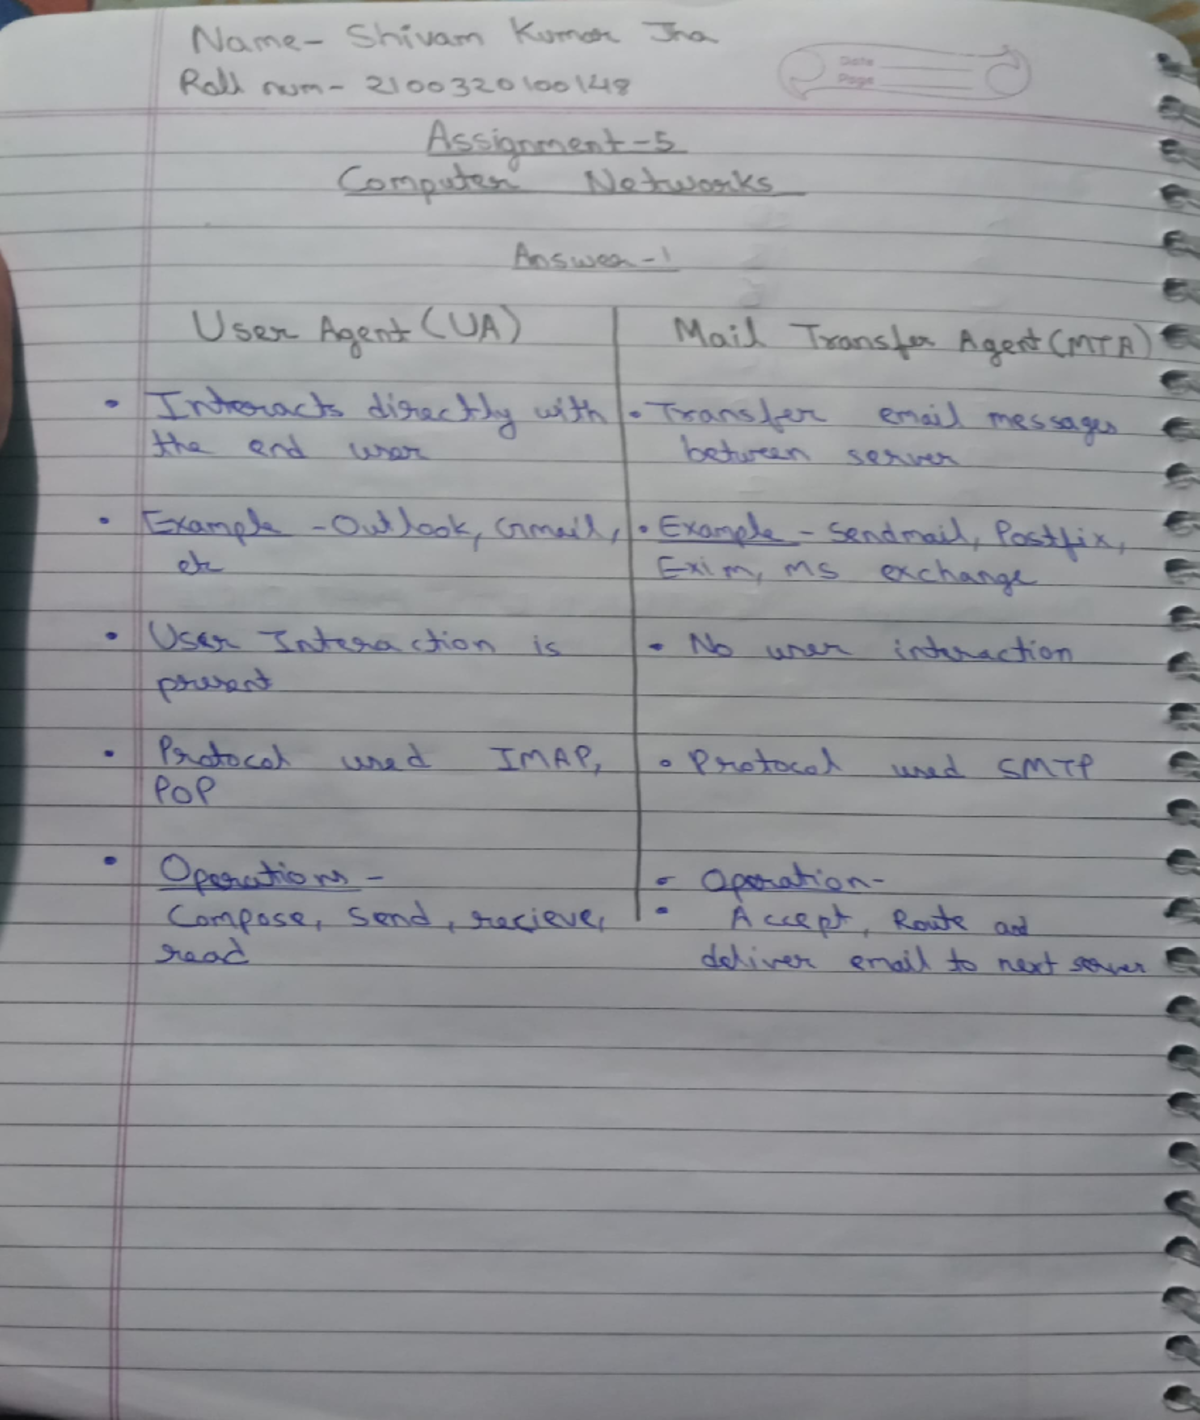 Name- Shivam Kumar Jha
Roll num- 2100320100148
Date
Page
Assignment-5
Computer Networks
Answer-1
User Agent (UA)
• Interacts directly with
the end user
• Example - Outlook, Gmail,
etc
• User Interaction is
present
• Protocol used IMAP,
POP
• Operations -
Compose, Send, recieve,
read
Mail Transfer Agent (MTA)
• Transfer email messages
between server
• Example - Sendmail, Postfix,
Exim, MS exchange
• No user interaction
• Protocol used SMTP
• Operation-
• Accept, Route and
deliver email to next server